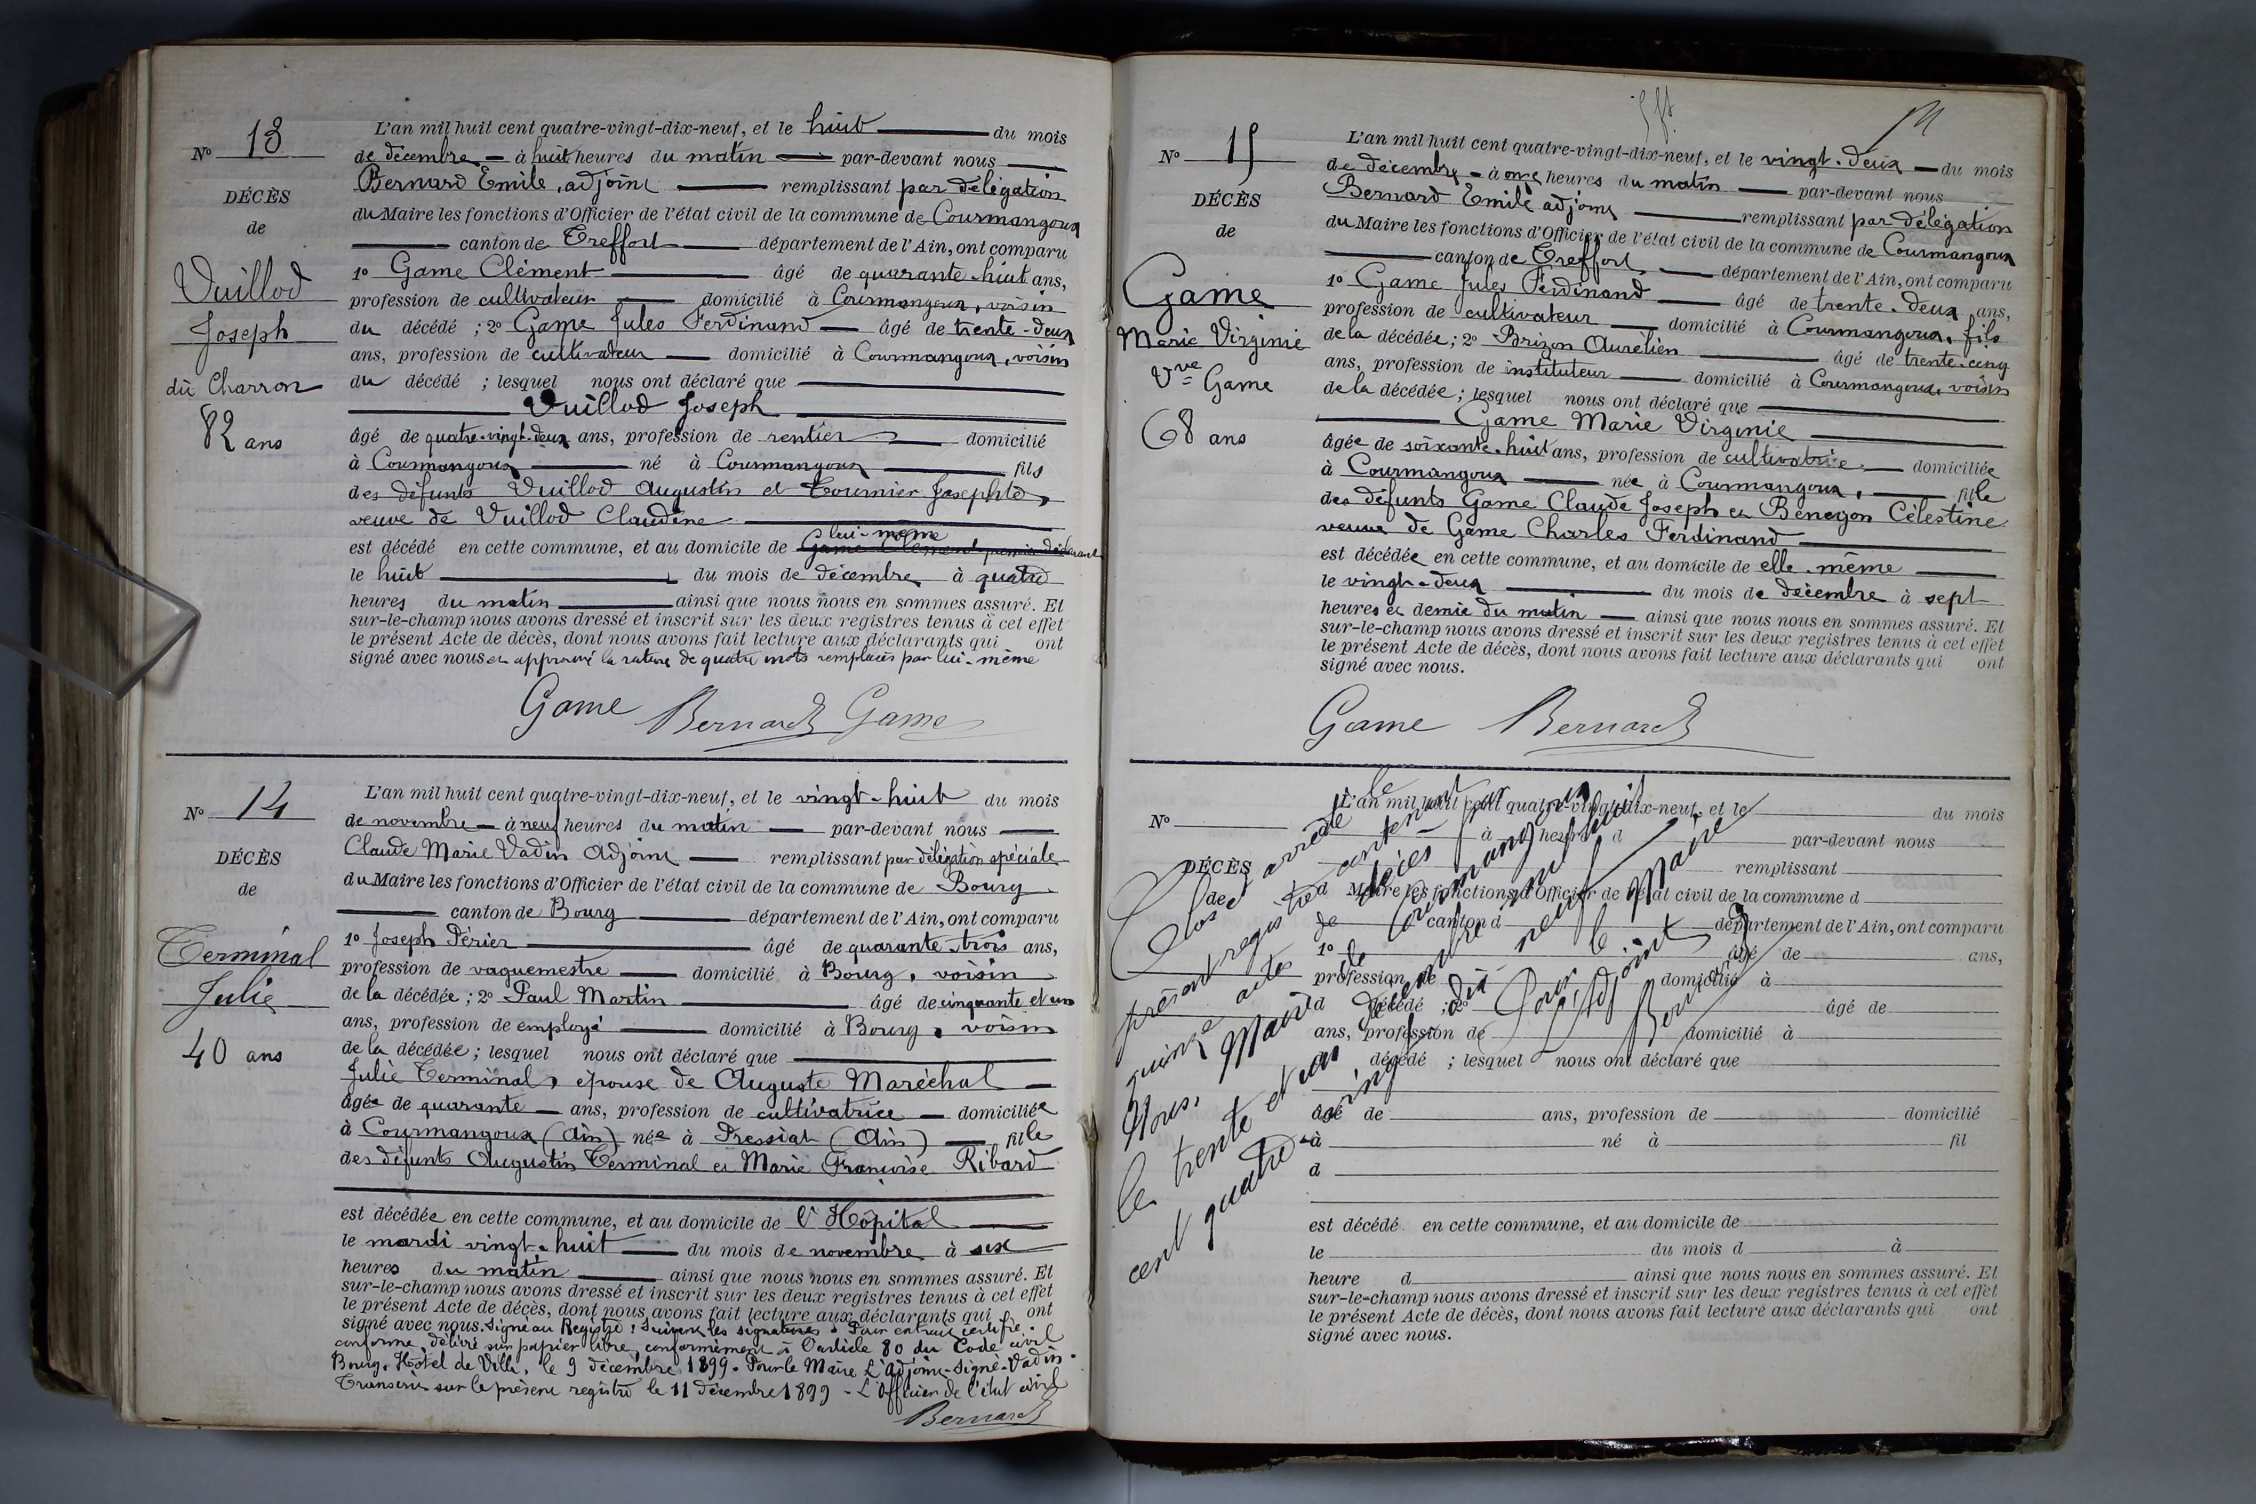 N° 13
DÉCÈS
de
Vuillod
Joseph
dit Charron
82 ans
L'an mil huit cent quatre-vingt-dix-neuf, et le huit du mois
de décembre à huit heures du matin par-devant nous
Bernard Emile, adjoint remplissant par délégation
du Maire les fonctions d'Officier de l'état civil de la commune de Courmangoux
canton de Treffort département de l'Ain, ont comparu
1° Game Clément âgé de quarante-huit ans,
profession de cultivateur domicilié à Courmangoux, voisin
du décédé ; 2° Game Jules Ferdinand âgé de trente-deux
ans, profession de cultivateur domicilié à Courmangoux, voisin
du décédé ; lesquel nous ont déclaré que
Vuillod Joseph
âgé de quatre-vingt-deux ans, profession de rentier domicilié
à Courmangoux né à Courmangoux fils
des défunts Vuillod Augustin et Tournier Josephte,
veuve de Vuillod Claudine
lui-même
est décédé en cette commune, et au domicile de Game Clément premier déclarant
le huit du mois de décembre à quatre
heures du matin ainsi que nous nous en sommes assuré. Et
sur-le-champ nous avons dressé et inscrit sur les deux registres tenus à cet effet
le présent Acte de décès, dont nous avons fait lecture aux déclarants qui ont
signé avec nous et approuvé la rature de quatre mots remplacés par lui-même
Game Bernard Game
N° 14
DÉCÈS
de
Terminal
Julie
40 ans
L'an mil huit cent quatre-vingt-dix-neuf, et le vingt-huit du mois
de novembre à neuf heures du matin par-devant nous
Claude Marie Vadin Adjoint remplissant par délégation spéciale
du Maire les fonctions d'Officier de l'état civil de la commune de Bourg
canton de Bourg département de l'Ain, ont comparu
1° Joseph Périer âgé de quarante-trois ans,
profession de vaguemestre domicilié à Bourg, voisin
de la décédée ; 2° Paul Martin âgé de cinquante et un
ans, profession de employé domicilié à Bourg, voisin
de la décédée ; lesquel nous ont déclaré que
Julie Terminal, épouse de Auguste Maréchal
âgée de quarante ans, profession de cultivatrice domiciliée
à Courmangoux (Ain) née à Pressiat (Ain) fille
des défunts Augustin Terminal et Marie Françoise Ribard
est décédée en cette commune, et au domicile de l'Hôpital
le mardi vingt-huit du mois de novembre à six
heures du matin ainsi que nous nous en sommes assuré. Et
sur-le-champ nous avons dressé et inscrit sur les deux registres tenus à cet effet
le présent Acte de décès, dont nous avons fait lecture aux déclarants qui ont
signé avec nous. Signé au Registre : Suivent les signatures. Pour extrait certifié
conforme, délivré sur papier libre, conformément à l'article 80 du Code civil
Bourg, Hôtel de Ville, le 9 décembre 1899. Pour le Maire L'Adjoint. Signé Vadin.
Transcrit sur le présent registre le 11 décembre 1899 - L'Officier de l'état civil
Bernard
N° 15
DÉCÈS
de
Game
Marie Virginie
Vve Game
68 ans
L'an mil huit cent quatre-vingt-dix-neuf, et le vingt-deux du mois
de décembre à onze heures du matin par-devant nous
Bernard Emile adjoint remplissant par délégation
du Maire les fonctions d'Officier de l'état civil de la commune de Courmangoux
canton de Treffort département de l'Ain, ont comparu
1° Game Jules Ferdinand âgé de trente-deux ans,
profession de cultivateur domicilié à Courmangoux, fils
de la décédée ; 2° Brizon Aurélien âgé de trente-cinq
ans, profession de instituteur domicilié à Courmangoux, voisin
de la décédée ; lesquel nous ont déclaré que
Game Marie Virginie
âgée de soixante-huit ans, profession de cultivatrice domiciliée
à Courmangoux née à Courmangoux, fille
des défunts Game Claude Joseph et Benezon Célestine
veuve de Game Charles Ferdinand
est décédée en cette commune, et au domicile de elle-même
le vingt-deux du mois de décembre à sept
heures et demie du matin ainsi que nous nous en sommes assuré. Et
sur-le-champ nous avons dressé et inscrit sur les deux registres tenus à cet effet
le présent Acte de décès, dont nous avons fait lecture aux déclarants qui ont
signé avec nous.
Game Bernard
N°
DÉCÈS
de
L'an mil huit cent quatre-vingt-dix-neuf, et le du mois
à heure d par-devant nous
remplissant
d Maire les fonctions d'Officier de l'état civil de la commune d
canton d département de l'Ain, ont comparu
1° âgé de ans,
profession de domicilié à
d décédé ; 2° âgé de
ans, profession de domicilié à
décédé ; lesquel nous ont déclaré que
âgé de ans, profession de domicilié
à né à fil
d
est décédé en cette commune, et au domicile de
le du mois d à
heure d ainsi que nous nous en sommes assuré. Et
sur-le-champ nous avons dressé et inscrit sur les deux registres tenus à cet effet
le présent Acte de décès, dont nous avons fait lecture aux déclarants qui ont
signé avec nous.
Clos et arrêté le
présent registre contenant
quinze actes de décès par
Nous, Maire de Courmangoux
le trente et un décembre mil huit
cent quatre-vingt dix-neuf
Pour le Maire
l'Adjoint
Bernard